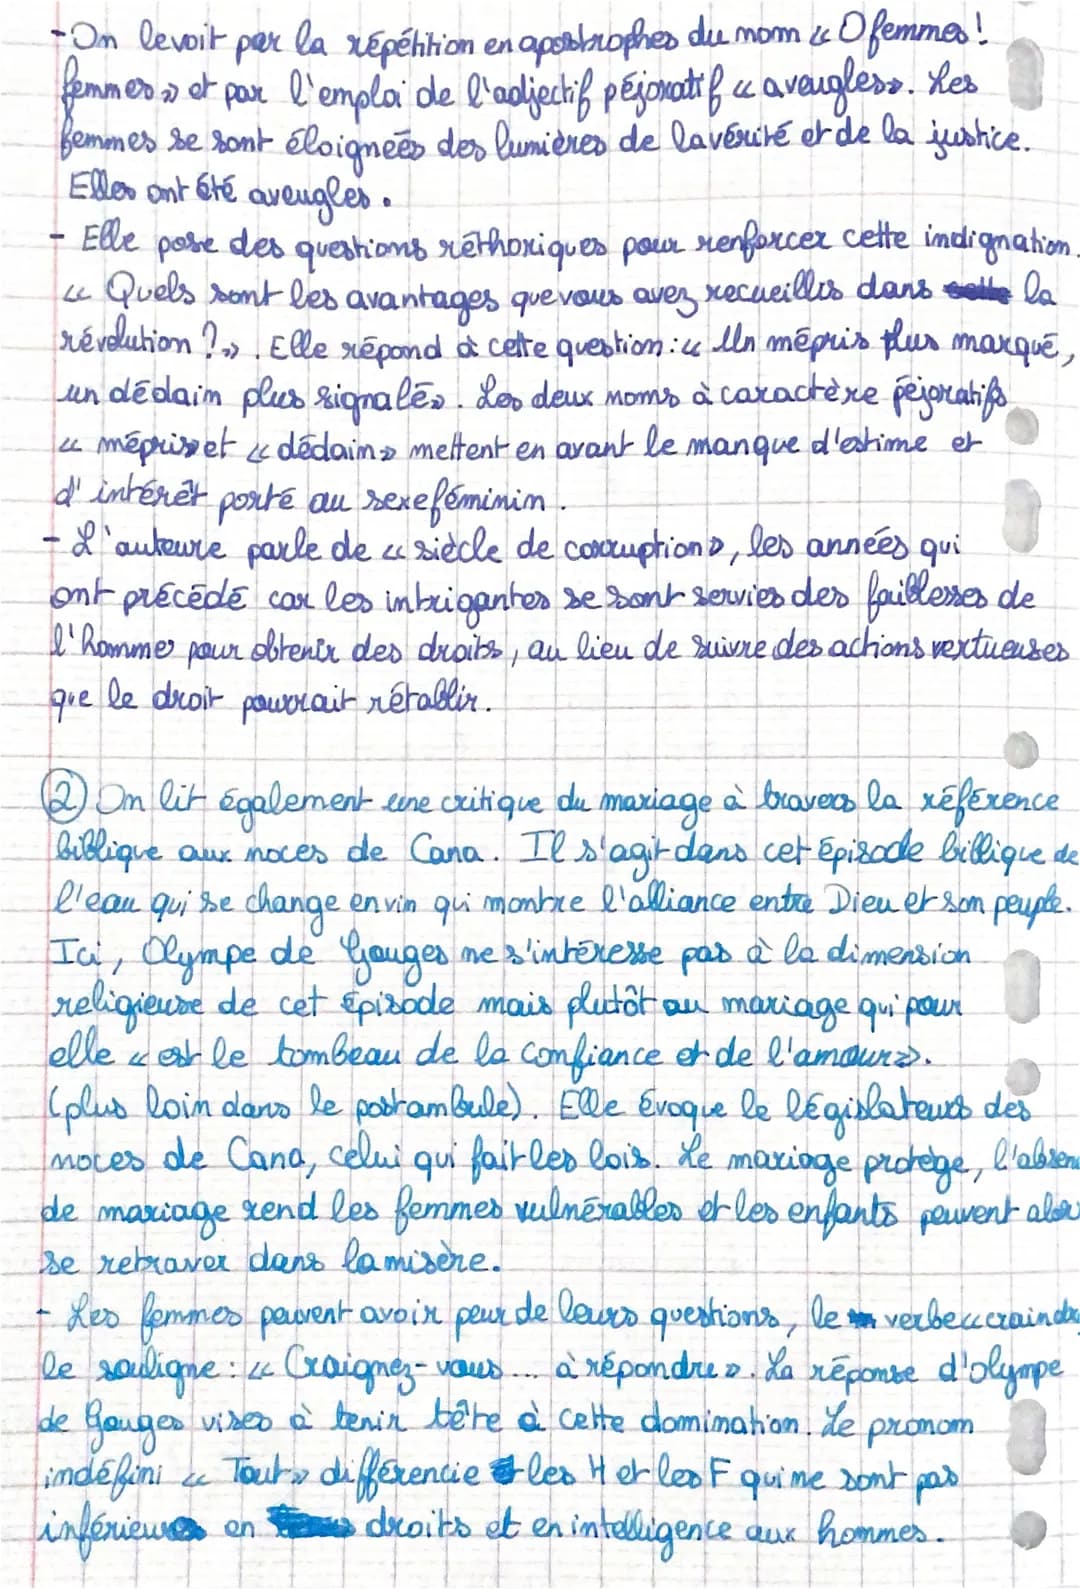 - On le voit par la répétition en apostrophes du nom « O femmes !
femmes » et par l'emploi de l'adjectif péjoratif « aveugles ». Les
femmes se sont éloignées des lumières de la vérité et de la justice.
Elles ont été aveugles.
- Elle pose des questions réthoriques pour renforcer cette indignation.
« Quels sont les avantages que vous avez recueillis dans la
révolution ? ». Elle répond à cette question : « Un mépris plus marqué,
un dédain plus signalé ». Les deux noms à caractère péjoratifs
« mépris » et « dédain » mettent en avant le manque d'estime et
d'intérêt porté au sexe féminin.
- L'auteure parle de « siècle de corruption », les années qui
ont précédé car les intrigantes se sont servies des faiblesses de
l'homme pour obtenir des droits, au lieu de suivre des actions vertueuses
que le droit pourrait rétablir.
② On lit également une critique du mariage à travers la référence
biblique aux noces de Cana. Il s'agit dans cet épisode biblique de
l'eau qui se change en vin qui montre l'alliance entre Dieu et son peuple.
Ici, Olympe de Gouges ne s'intéresse pas à la dimension
religieuse de cet épisode mais plutôt au mariage qui pour
elle « est le tombeau de la confiance et de l'amour ».
(plus loin dans le postambule). Elle évoque le législateurs des
noces de Cana, celui qui fait les lois. Le mariage protège, l'absen
de mariage rend les femmes vulnérables et les enfants peuvent alor
se retraver dans la misère.
- Les femmes peuvent avoir peur de leurs questions, le verbe « craindre
le souligne : « Craignez-vous ... à répondre ». La réponse d'olympe
de Gouges vises à tenir tête à cette domination. Le pronom
indéfini « Tout » différencie les H et les F qui ne sont pas
inférieures en droits et en intelligence aux hommes.